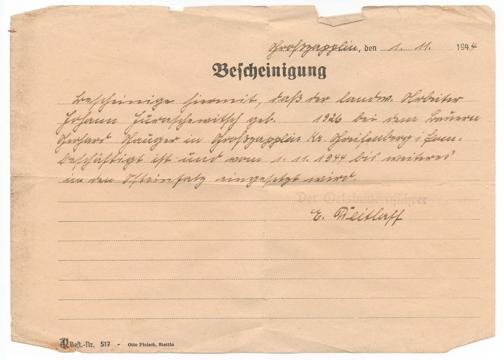 Großzapplin, den 1. 11. 1944
Bescheinigung
Bescheinige hiermit, daß der landw. Arbeiter
Johann geb. 1926 bei dem Bauern
Gerhard in Großzapplin Kr. Greifenberg i/Pom.
beschäftigt ist und vom 1. 11. 1944 bis weiteres
in den Osteinsatz eingesetzt wird.
Der
E.
Best.-Nr. 517 - Otto Pletsch, Stettin